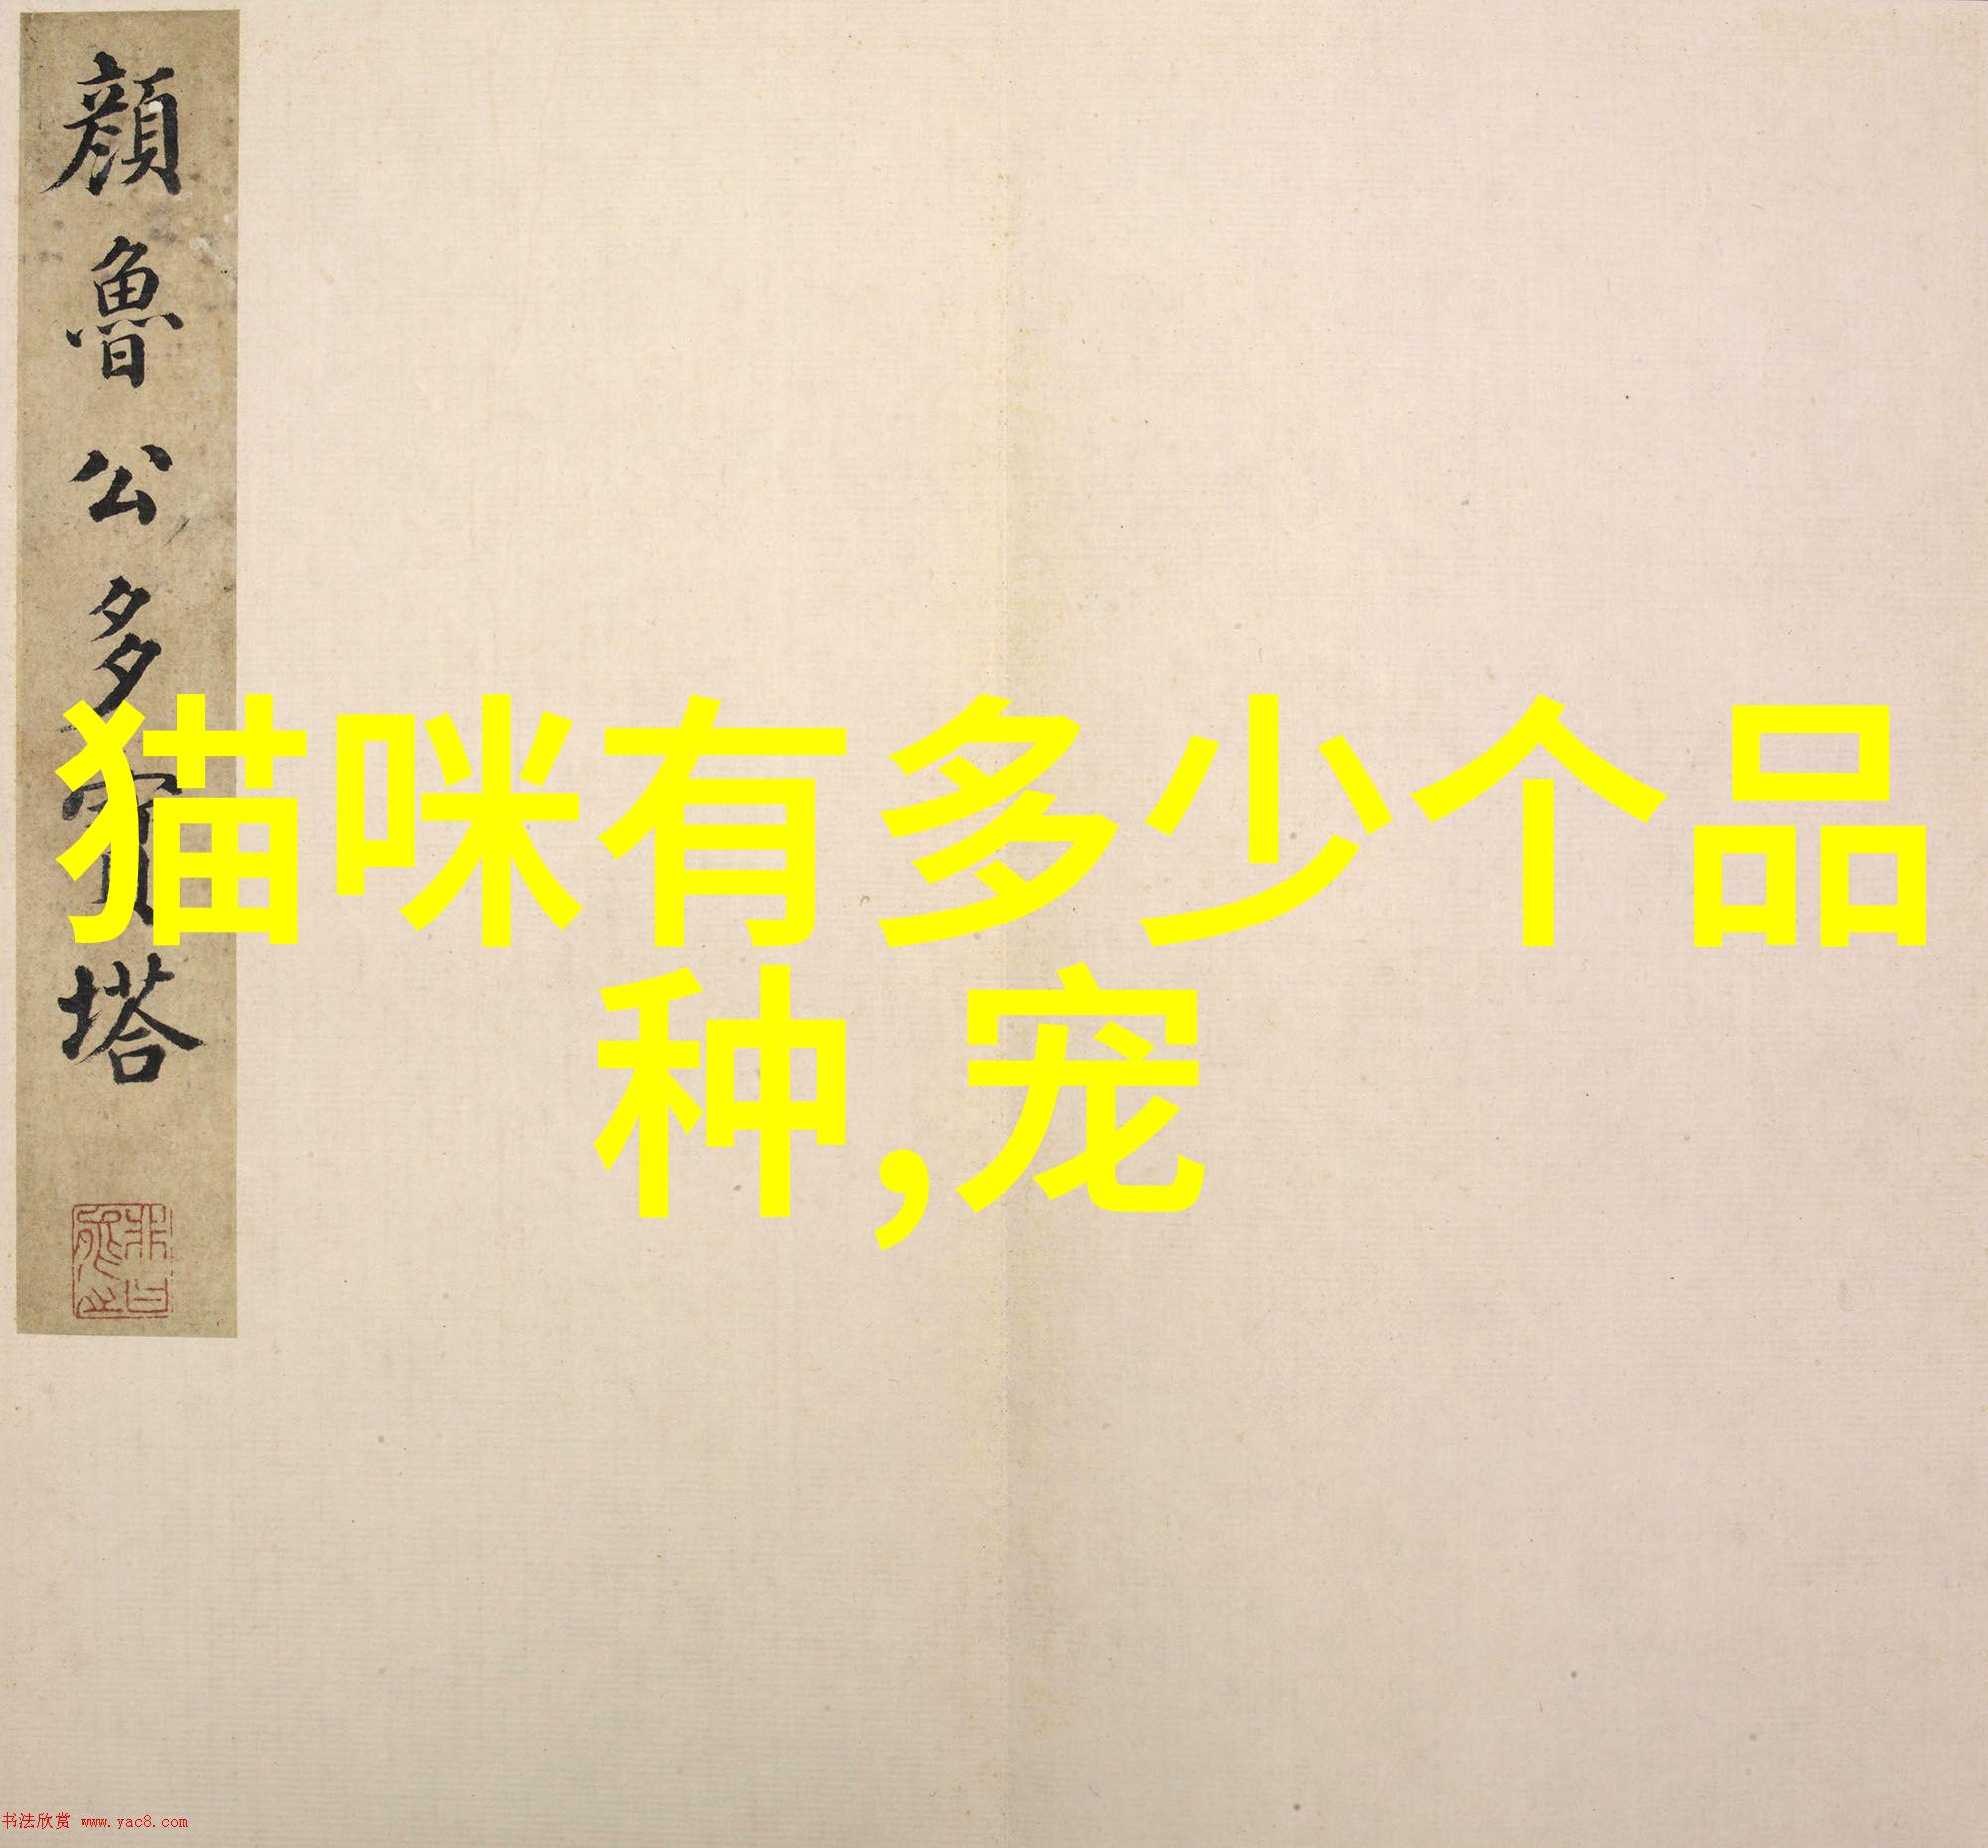 顔魯公多寶塔
猫咪有多少个品
种,宠
书法欣赏 www.yac8.com